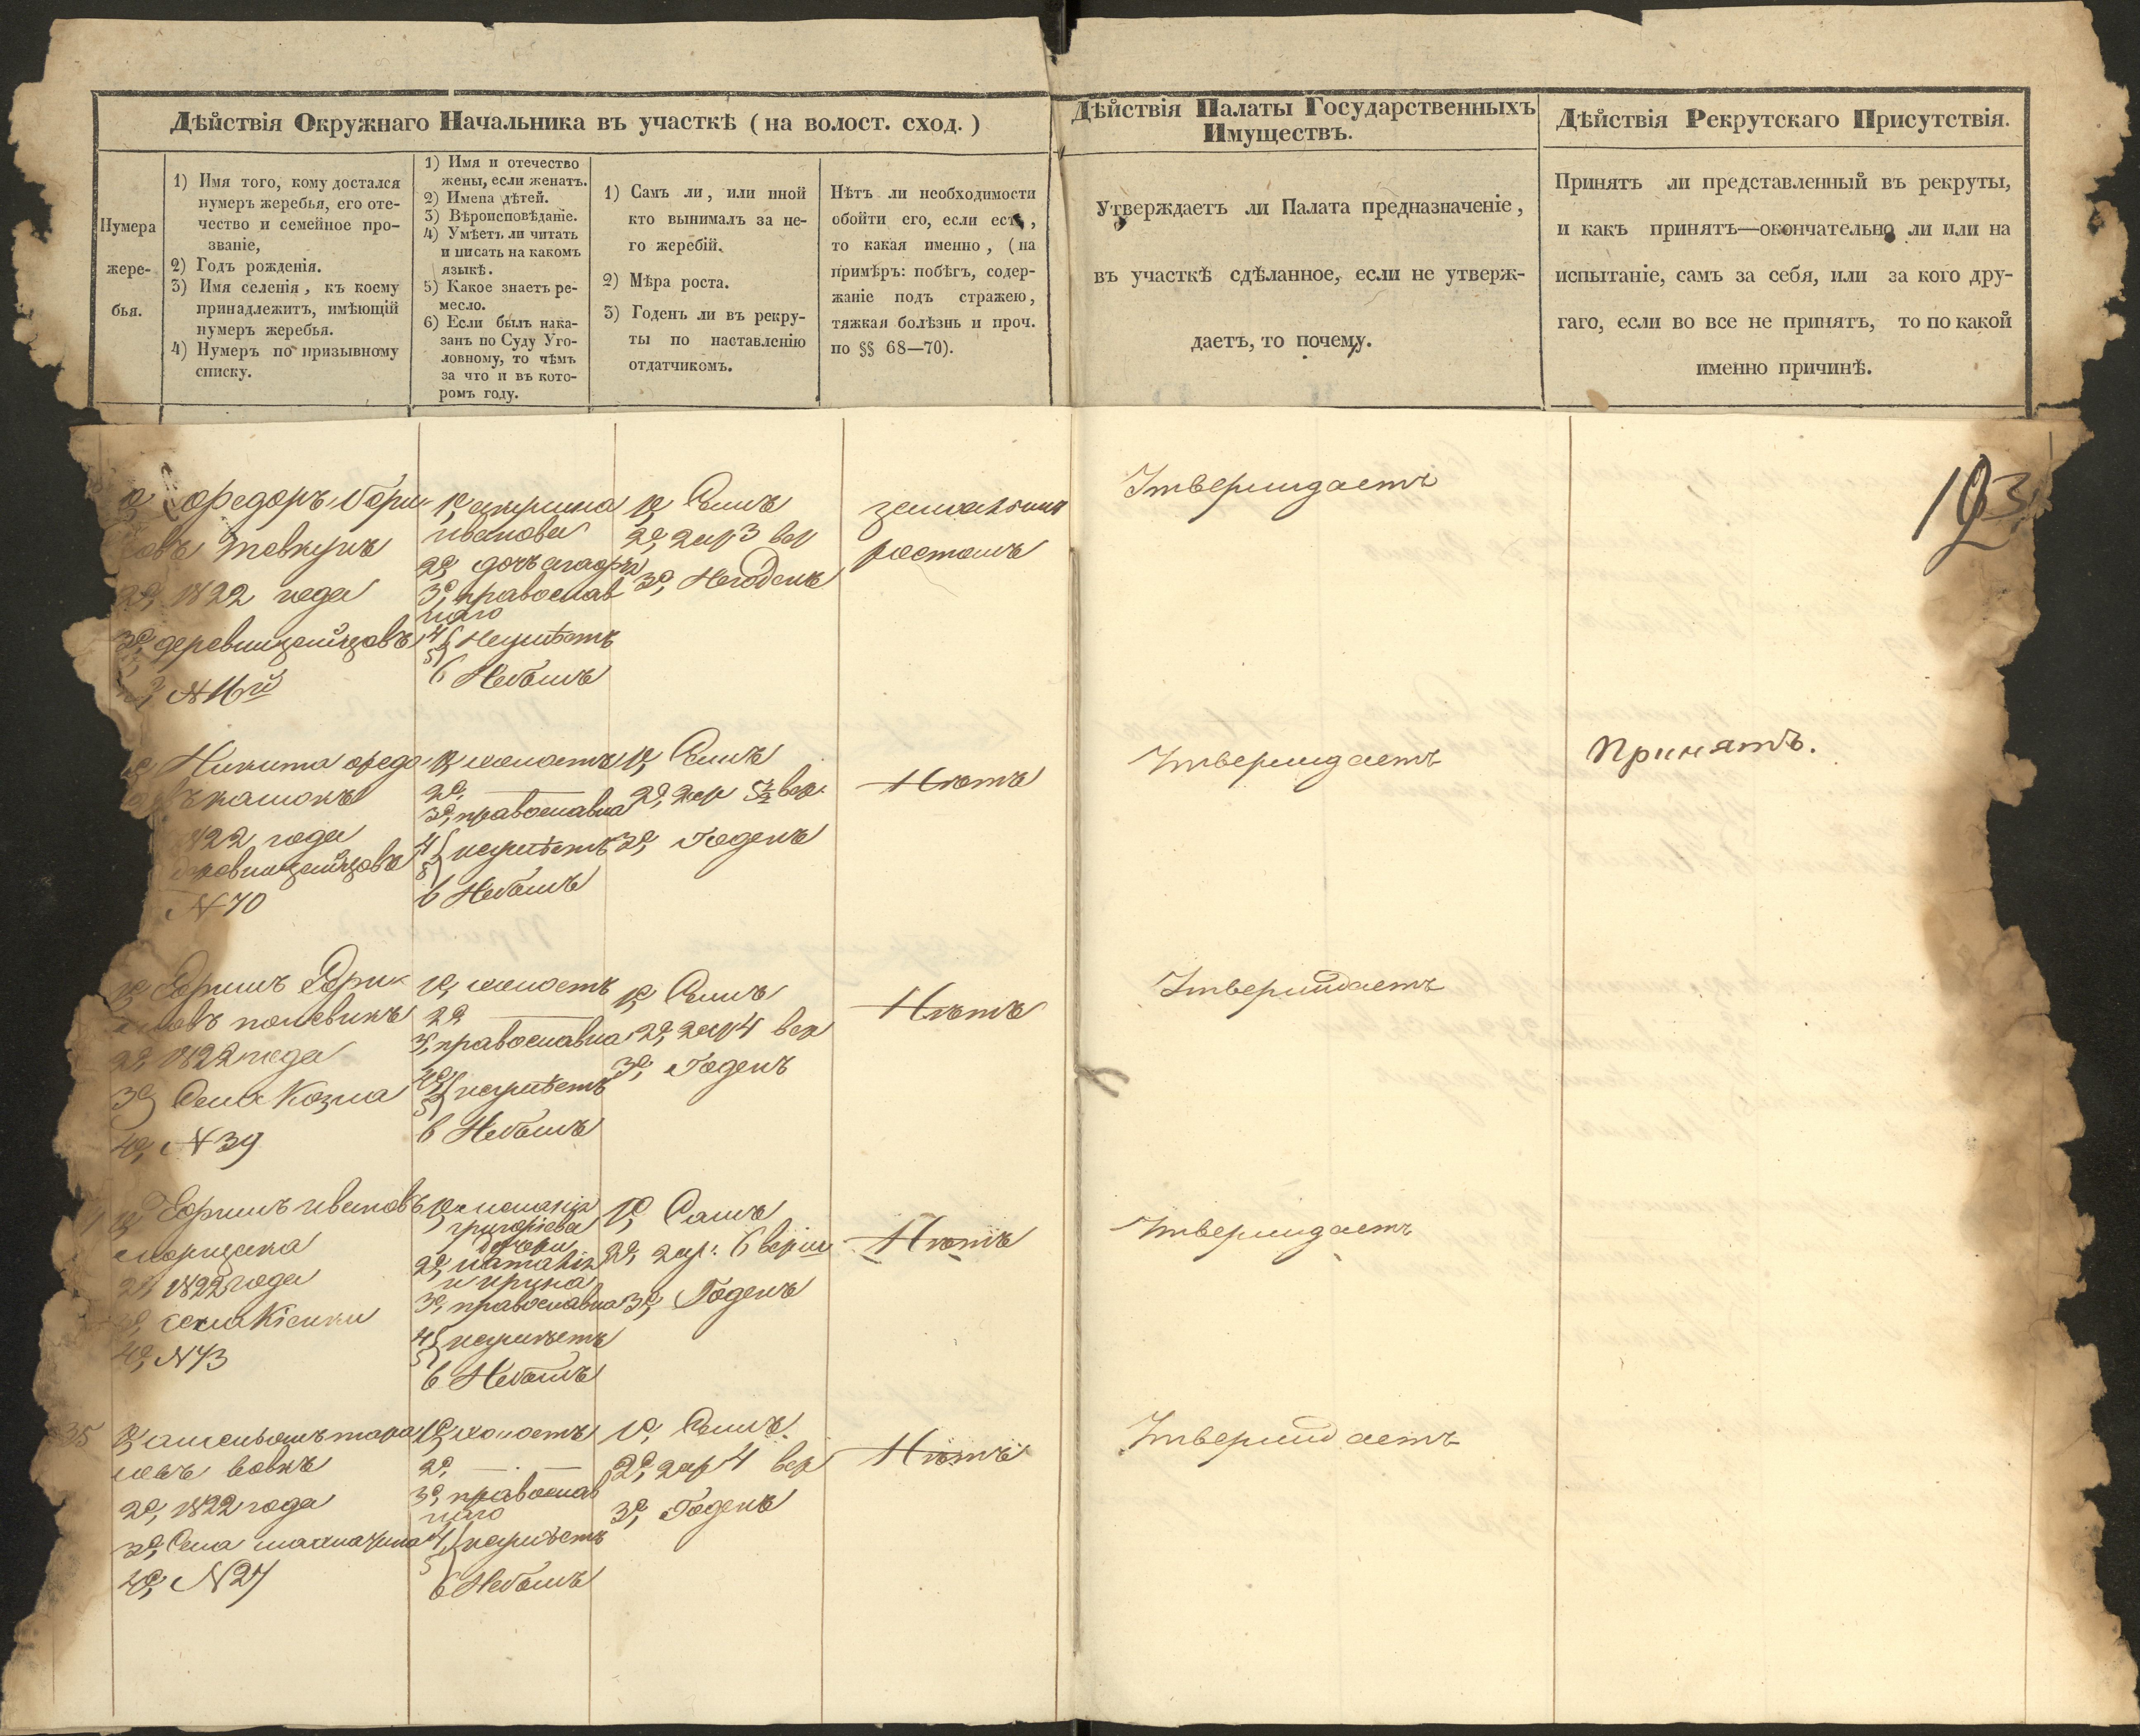 Дѣйствія Окружнаго Начальника въ участкѣ (на волост. сход.)
Нумера
жере-
бья.
1) Имя того, кому достался
нумеръ жеребья, его оте-
чество и семейное про-
званіе,
2) Годъ рожденія.
3) Имя селенія, къ коему
принадлежитъ, имѣющій
нумеръ жеребья.
4) Нумеръ по призывному
списку.
1) Имя и отечество
жены, если женатъ.
2) Имена дѣтей.
3) Вѣроисповѣданіе.
4) Умѣетъ ли читать
и писать на какомъ
языкѣ.
5) Какое знаетъ ре-
месло.
6) Если былъ нака-
занъ по Суду Уго-
ловному, то чѣмъ
за что и въ кото-
ромъ году.
1) Самъ ли, или иной
кто вынималъ за не-
го жеребій.
2) Мѣра роста.
3) Годенъ ли въ рекру-
ты по наставленію
отдатчикомъ.
Нѣтъ ли необходимости
обойти его, если есть,
то какая именно, (на
примѣръ: побѣгъ, содер-
жаніе подъ стражею,
тяжкая болѣзнь и проч.
по §§ 68—70).
Дѣйствія Палаты Государственныхъ
Имуществъ.
Утверждаетъ ли Палата предназначеніе,
въ участкѣ сдѣланное, если не утверж-
даетъ, то почему.
Дѣйствія Рекрутскаго Присутствія.
Принятъ ли представленный въ рекруты,
и какъ принятъ—окончательно ли или на
испытаніе, самъ за себя, или за кого дру-
гаго, если во все не принятъ, то по какой
именно причинѣ.
Федоръ Бори-
совъ
2е, 1822 года
3е, деревни
N 16й
иванова
2е, дочь
3е, православ
наго
4
5 Неумѣетъ
6 Небылъ
1е, Самъ
2е, 2 ар 3 вер
3е, Негоденъ
за малымъ
ростомъ
Утверждаетъ
123
Никита Федо
1822 года
N 70
1е, холостъ
2е, —
3е, православна
4
5 неумѣетъ
6 Небылъ
1е, Самъ
2е, 2 ар 5½ вер.
3е, Годенъ
Нѣтъ
Утверждаетъ
Принятъ.
1е, Ефимъ
полевикъ
2е, 1822 года
3е, Села Козла
4е, N 39
1е, холостъ
2е —
3е, православна
4е,
5 неумѣетъ
6 Небылъ
1е, Самъ
2е, 2 ар 4 вер
3е, Годенъ
Нѣтъ
Утверждаетъ
1е, Ефимъ ивановъ
2е, 1822 года
3е, села
4е, N 73
григорьева
дочери
2е, наталія
и ирина
3е, православна
4
5 неумѣетъ
6 Небылъ
1е, Самъ
2е, 2 ар: 6 верш
3е, Годенъ
Нѣтъ
Утверждаетъ
35
вовкъ
2е, 1822 года
3е, Села
4е, N 27
1е, холостъ
2е, —
3е, православ
наго
4,
5 неумѣетъ
6 Небылъ
1е, Самъ.
2е, 2 ар 4 вер
3е, Годенъ
Нѣтъ
Утверждаетъ